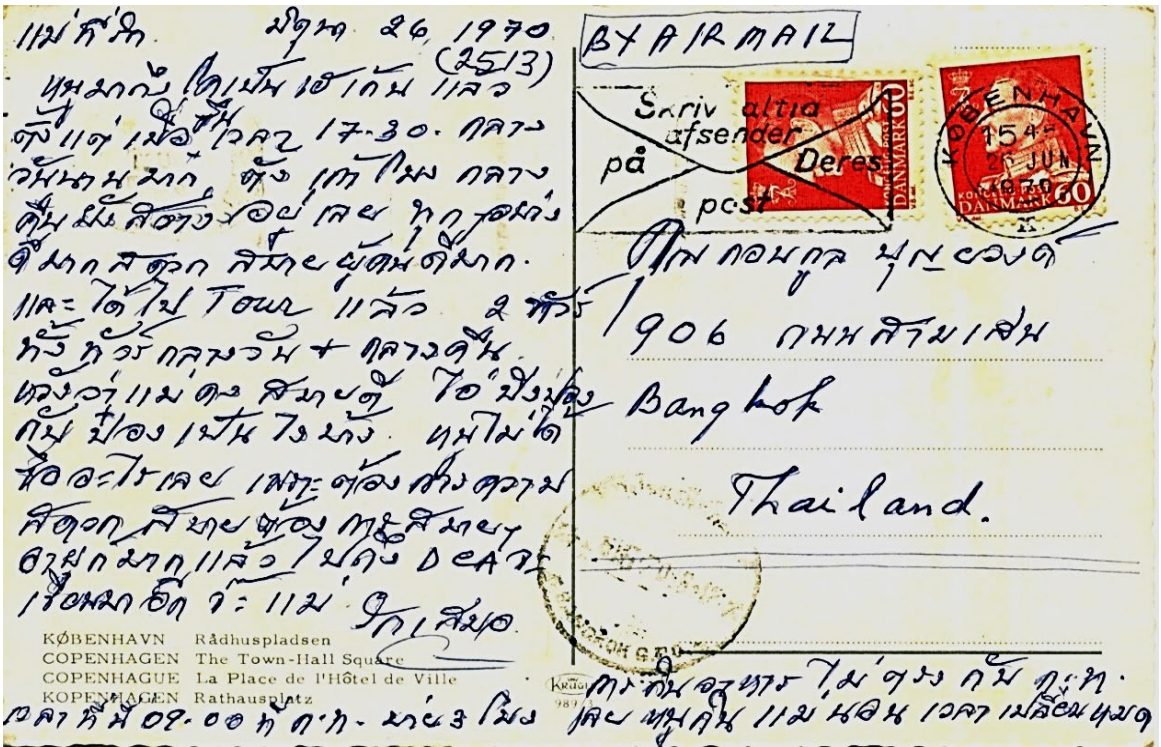 แม่ที่รัก มิถุนา 26, 1970
(2513)
หนูมาถึงโคเปนเฮเก้นแล้ว
ตั้งแต่เมื่อคืนเวลา 17-30. กลาง
วันนานมาก ตั้งเก้าโมงกลาง
คืนยังสว่างอยู่เลย ทุกๆอย่าง
ดีมากสดวกสบายผู้คนดีมาก.
และได้ไป Tour แล้ว 2 ทัวร์
ทั้งทัวร์กลางวัน + กลางคืน.
หวังว่าแม่คงสบายดี ไอ่ปิงปอง
กับป๋องเป็นไงบ้าง. หนูไม่ได้
ซื้ออะไรเลย เพราะต้องการความ
สดวกสบายต้องการสบายๆ
อายุก็มากแล้ว ไปถึง จะ
เขียนมาอีกจ้ะแม่
รักเสมอ
KØBENHAVN Rådhuspladsen
COPENHAGEN The Town-Hall Square
COPENHAGUE La Place de l'Hôtel de Ville
KOPENHAGEN Rathausplatz
เวลาที่นี่ 09-00 ที่ ก.ท. บ่าย 3 โมง
BY AIR MAIL
Skriv altid
afsender
på Deres
post
60
DANMARK
KØBENHAVN
15
26 JUN
1970
K
DANMARK 60
คุณกอบกูล บุญยวงศ์
906 ถนนสามเสน
Bangkok
Thailand.
KRÜGER
989/3
การกินอาหารไม่ตรงกับ ก.ท.
เลย หนูกิน แม่นอน เวลาเปลี่ยนหมด